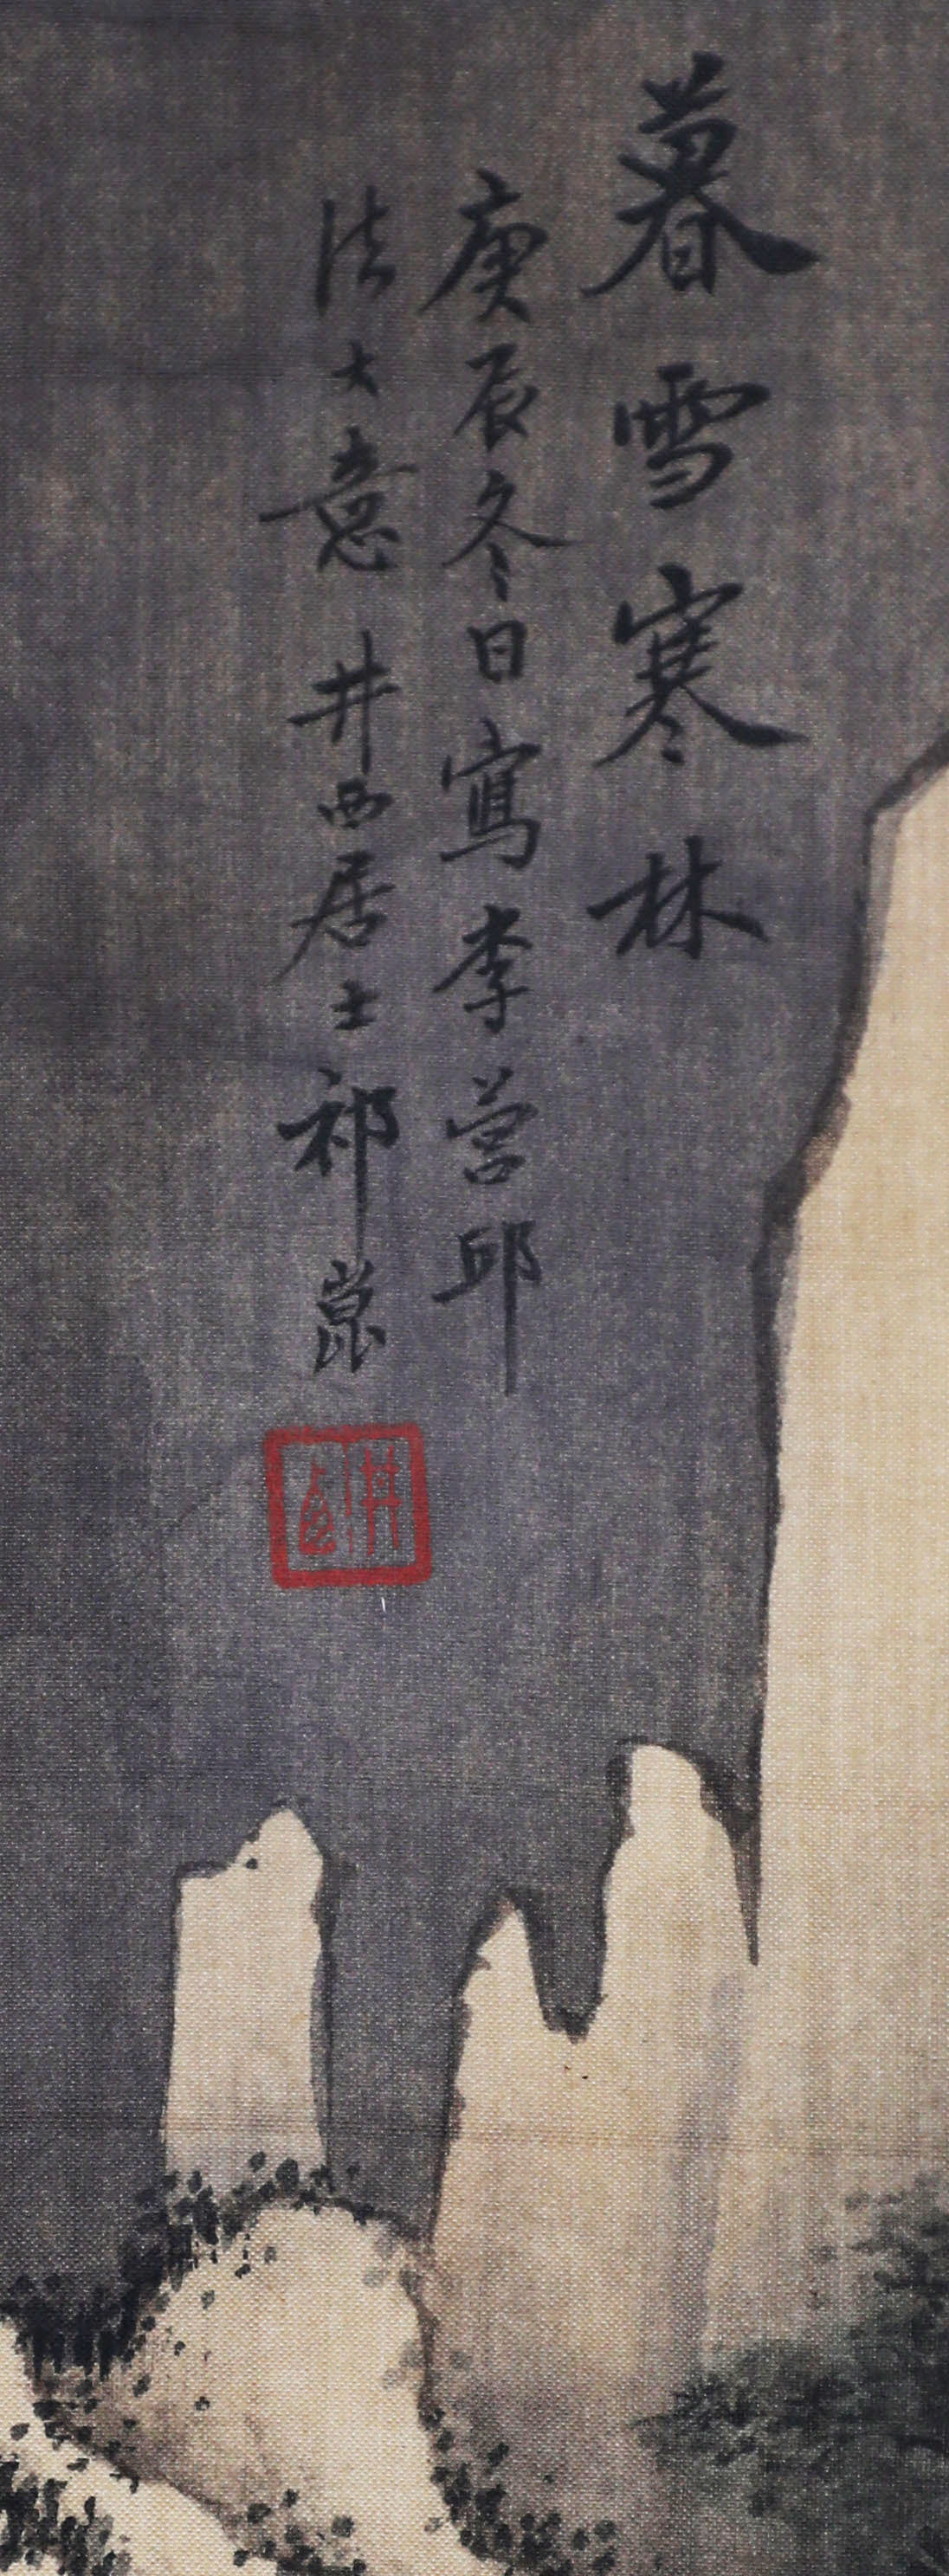 暮雪寒林
庚辰冬日寫李营邱
法大意 井西居士祁崑
井西